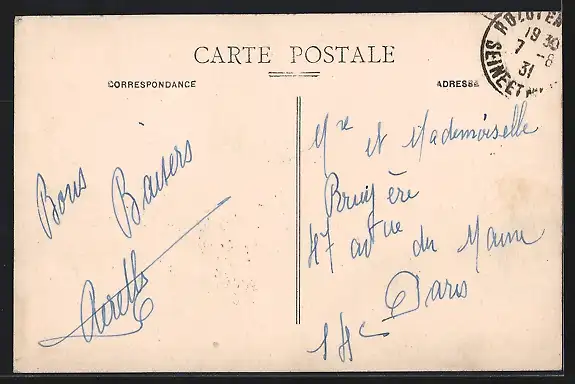 CARTE POSTALE
CORRESPONDANCE
ADRESSE
19 30
7 -8
31
SEINE ET
Bons Baisers
Mre et Mademoiselle
Bruyère
47 avue du Maine
Paris
14e